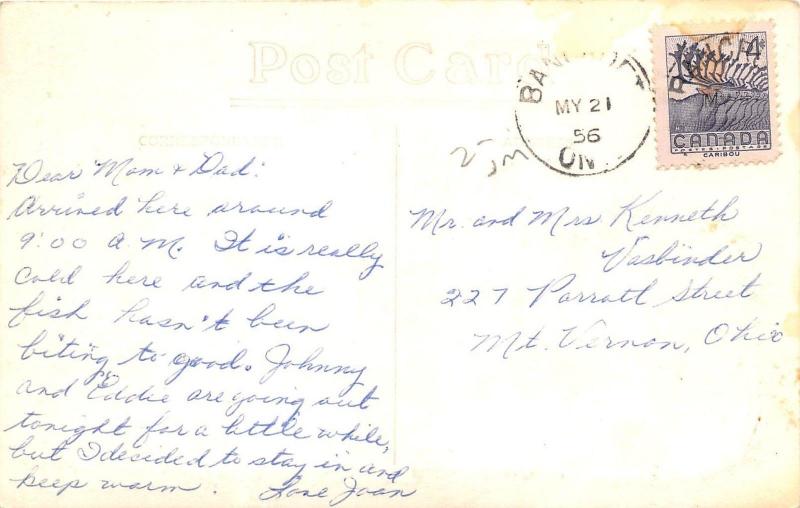 Post Card
BANCROFT
MY 21
56
ONT
4
CANADA
POSTES·POSTAGE
CARIBOU
CORRESPONDENCE
Dear Mom & Dad:
Arrived here around
9:00 A.M. It is really
cold here and the
fish hasn't been
biting to good. Johnny
and Eddie are going out
tonight for a little while,
but I decided to stay in and
keep warm. Love Joan
Mr. and Mrs Kenneth
Vasbinder
227 Parrott Street
Mt. Vernon, Ohio